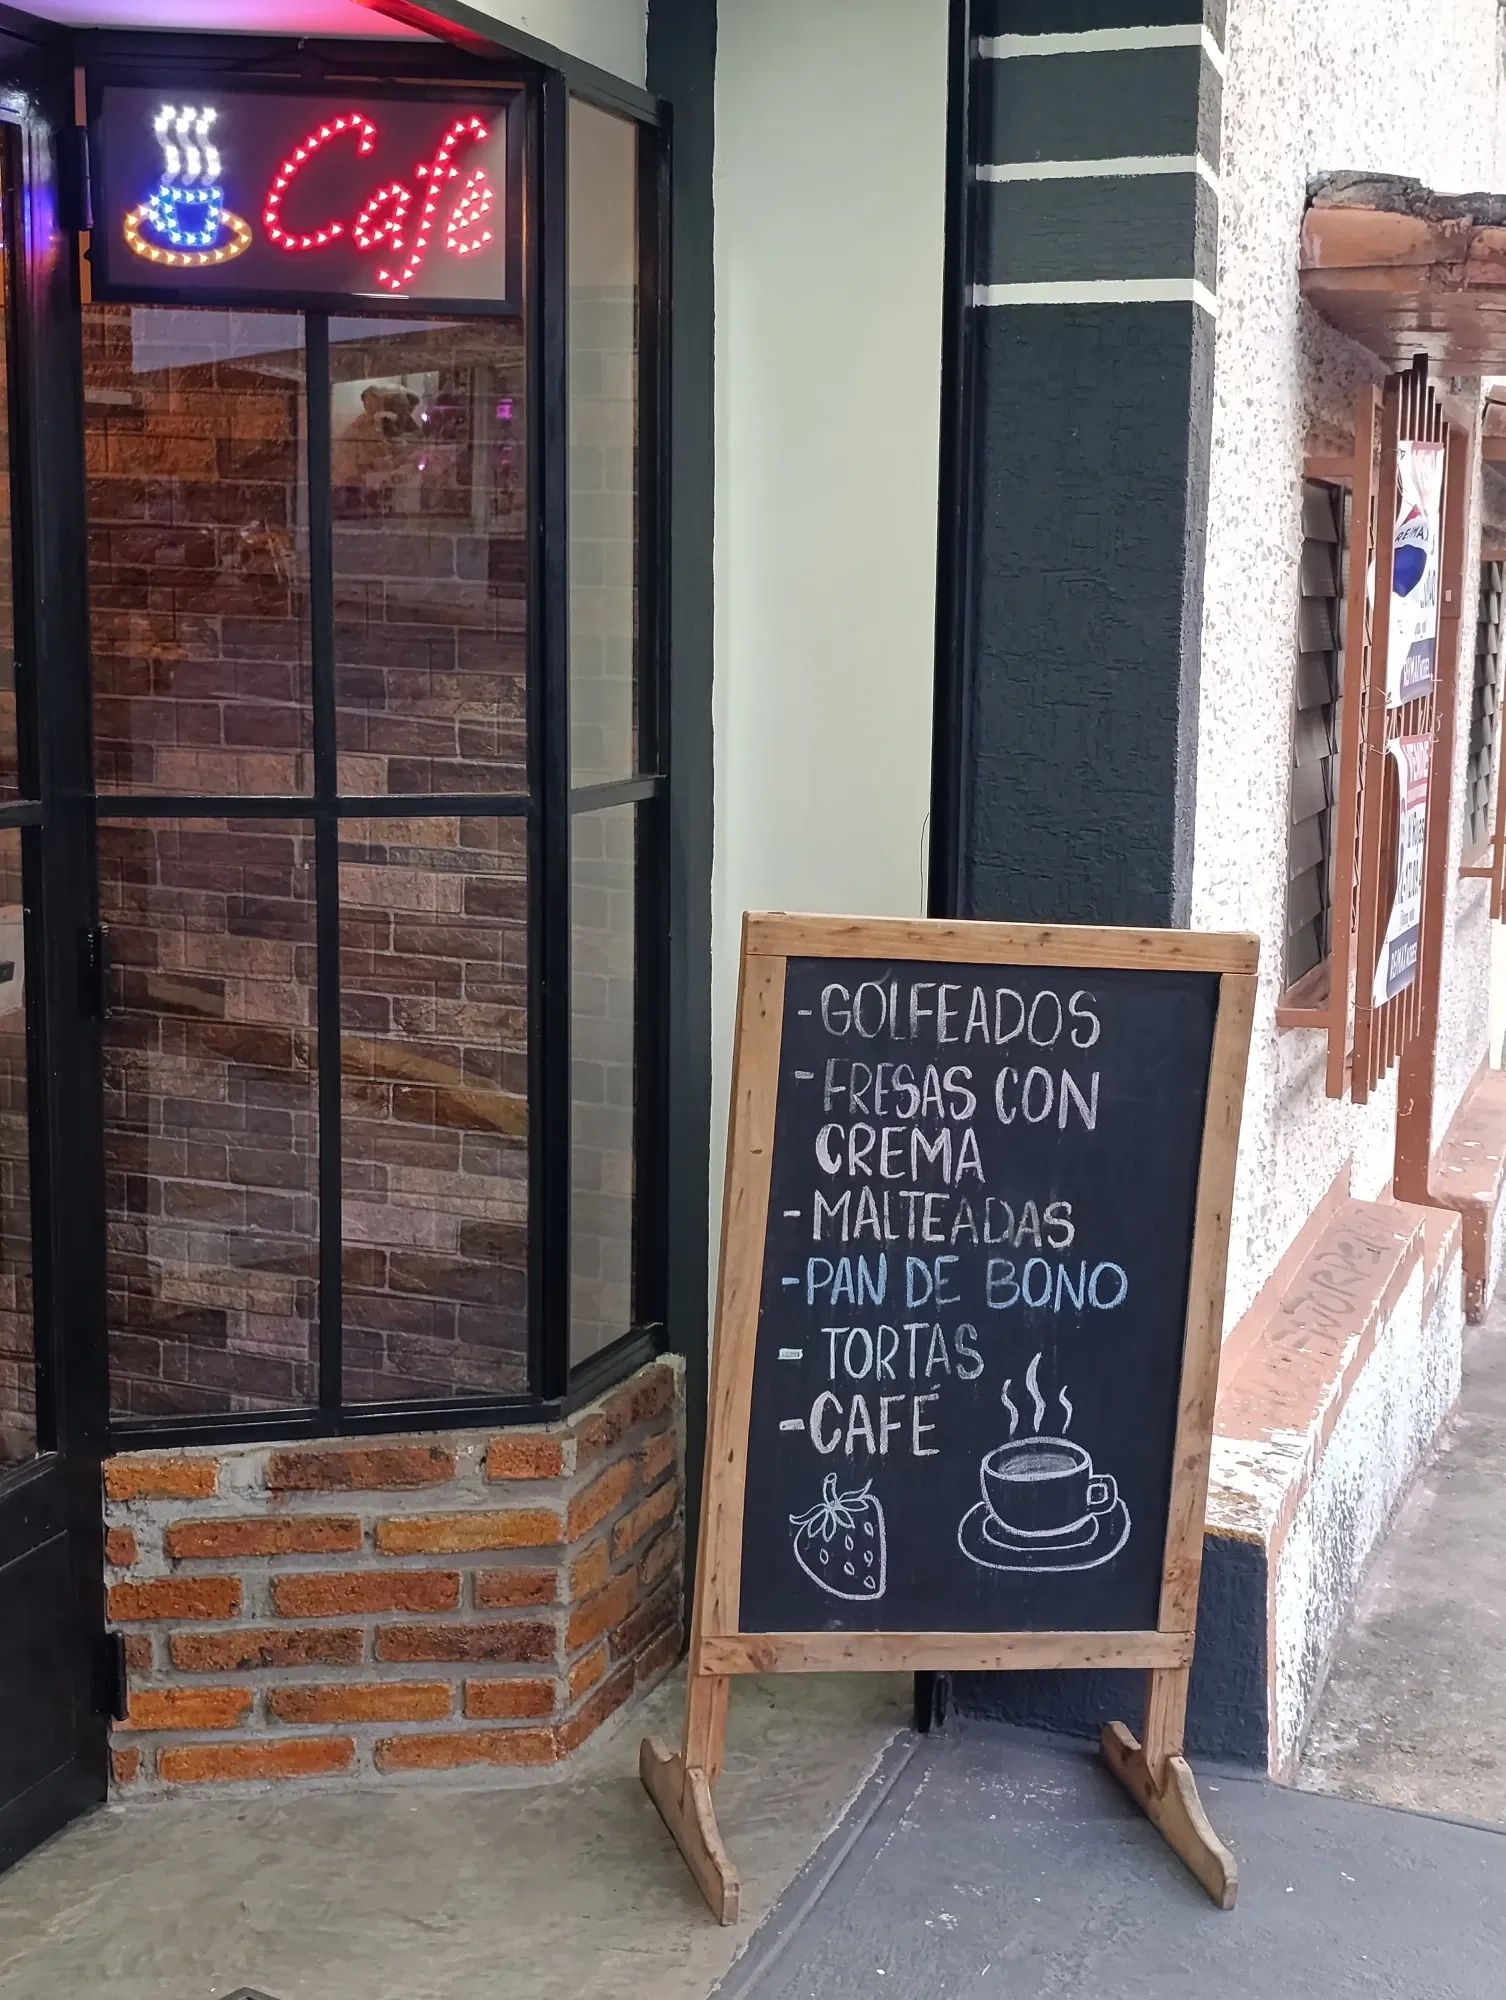 Café
- GOLFEADOS
- FRESAS CON
CREMA
- MALTEADAS
- PAN DE BONO
- TORTAS
- CAFÉ
RE/MAX